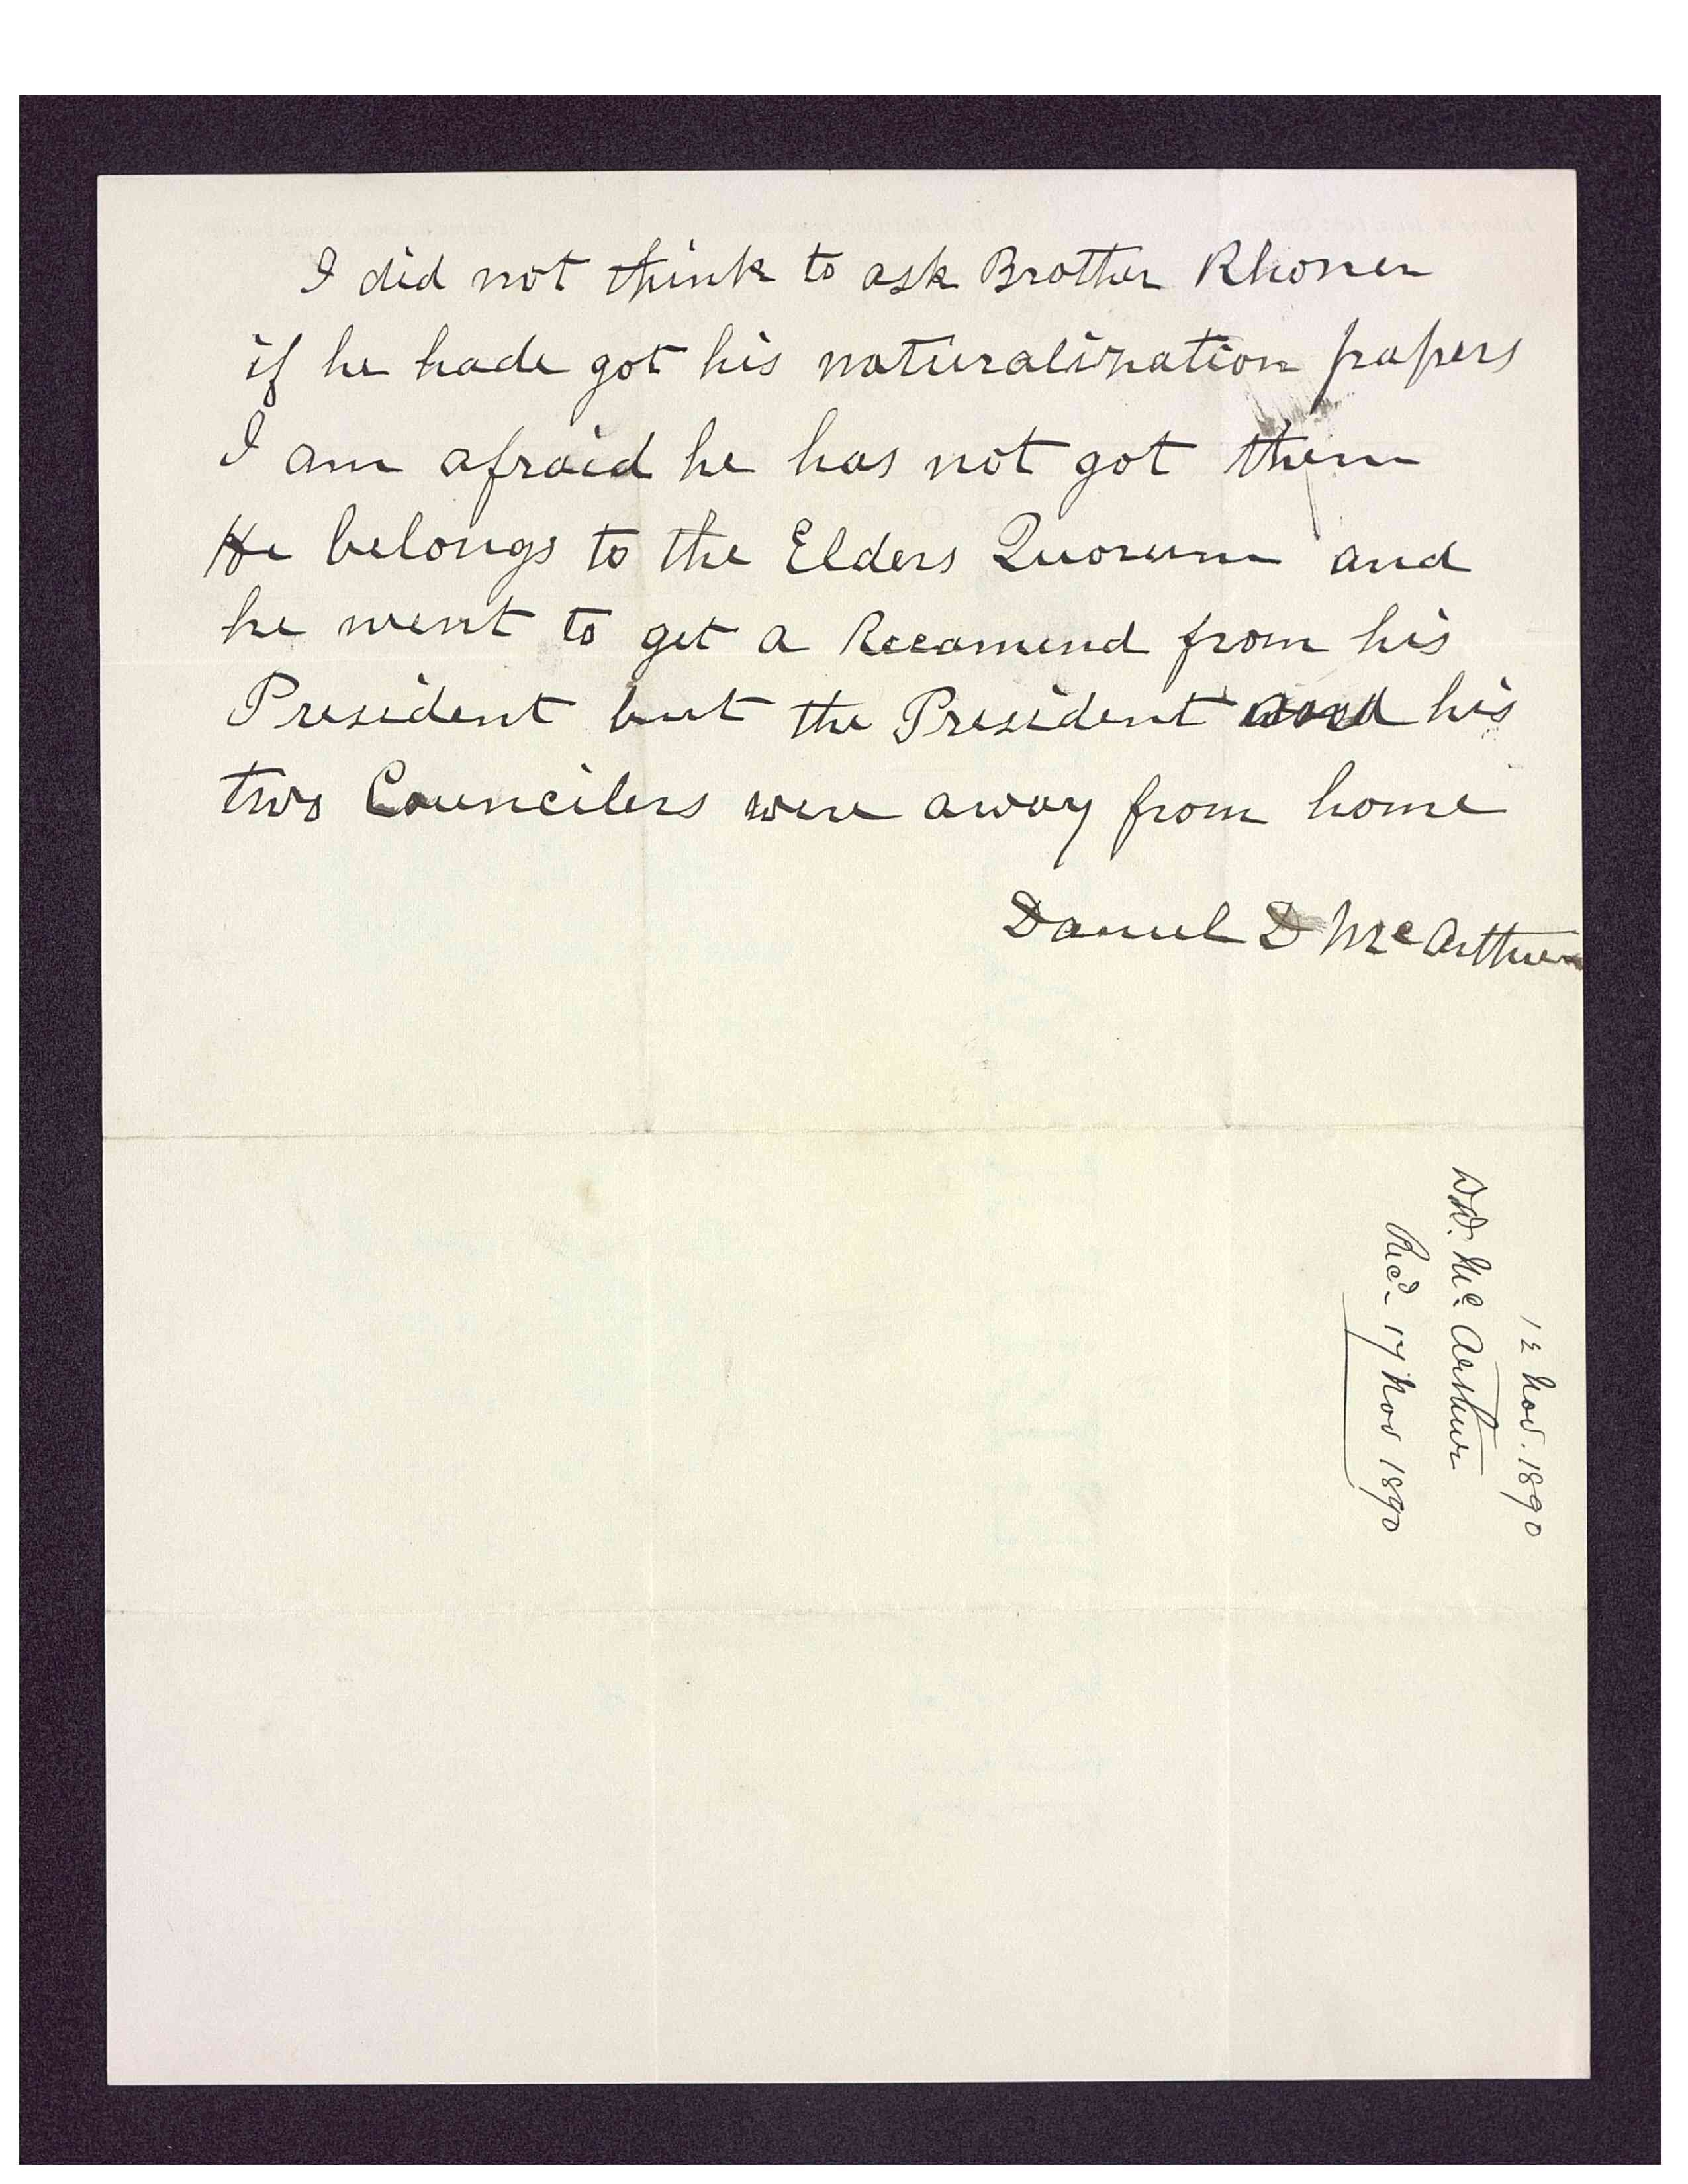 I did not think to ask Brother Rhoner
if he hade got his naturalization papers
I am afraid he has not got them
He belongs to the Elders Quorum and
he went to get a Recomend from his
President but the President and his
two Councilers were away from home
Daniel D McArthur
12 Nov. 1890
D.D. McArthur
Recd 17 Nov 1890